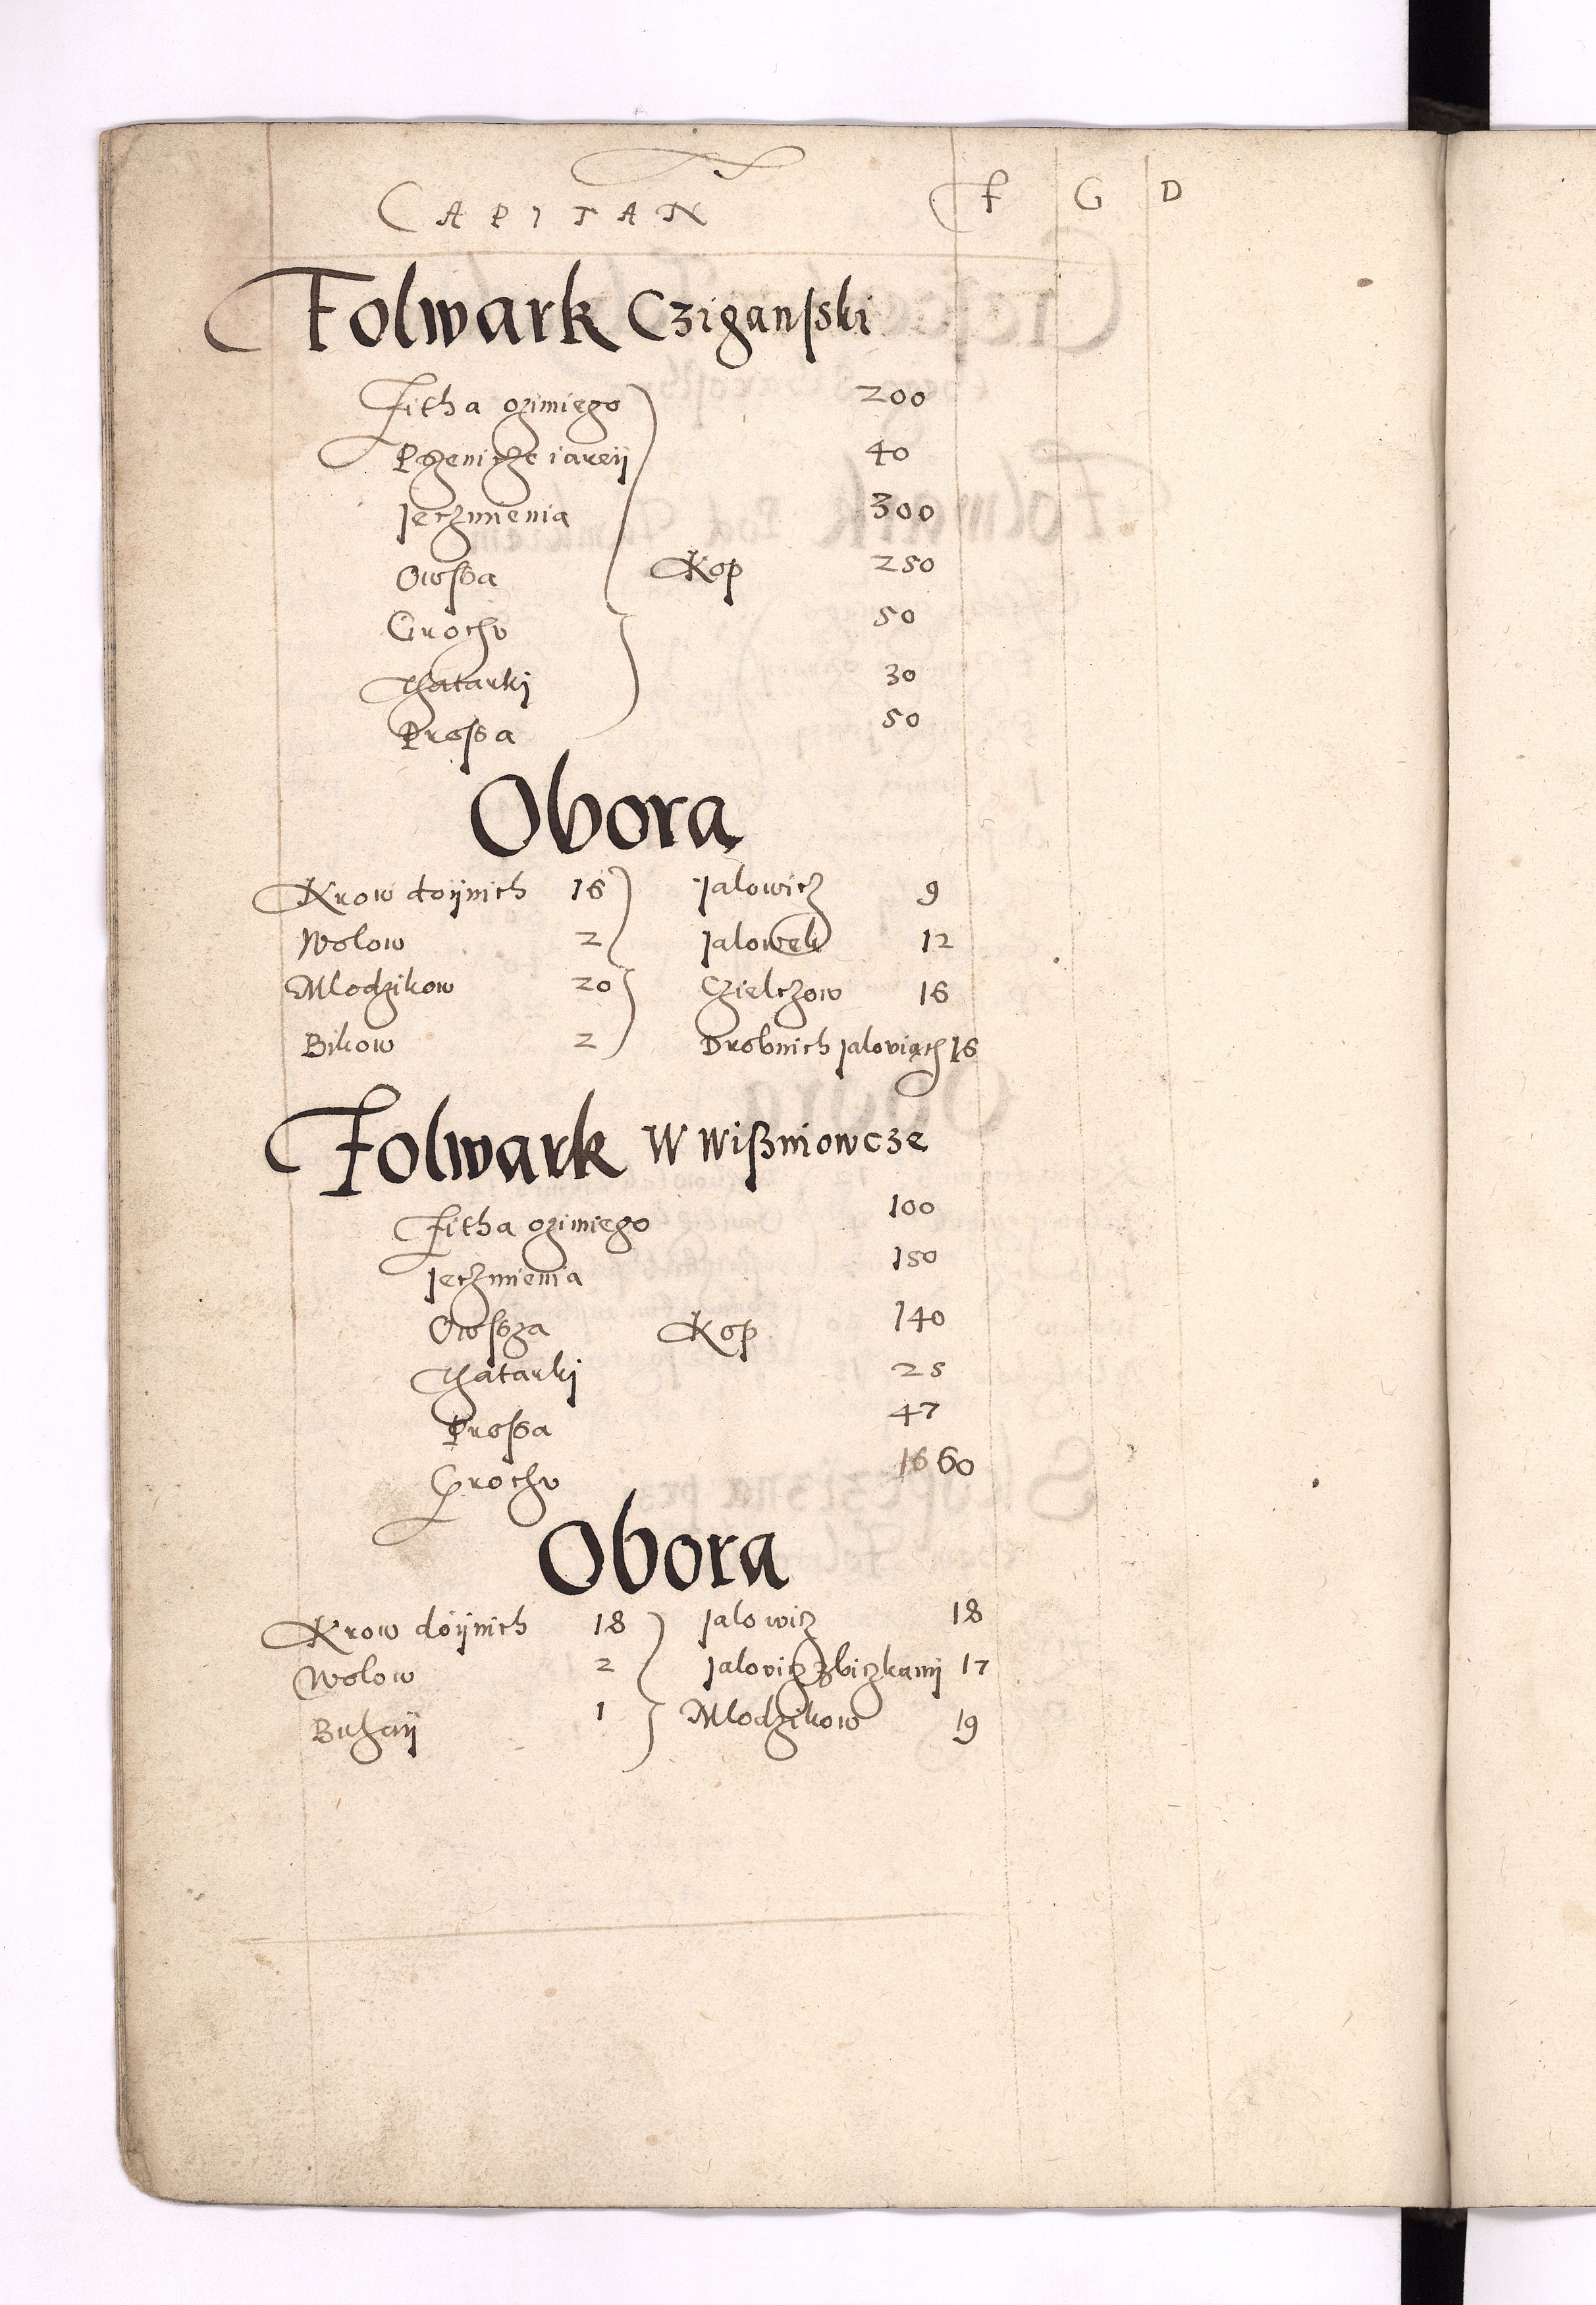 CAPITAN F G D
Folwark Cziganſski
Zitha ozimiego 200
Pszenicze iareij 40
Jeczmienia 300
Owſsa Kop 250
Grochv 50
Thatarkj 30
Proſsa 50
Obora
Krow doijnich 16 Jalowicz 9
Wolow 2 Jalowek 12
Mlodzikow 20 Czielczow 16
Bikow 2 Drobnich Jaloviąch 16
Folwark W Wißniowcze
Zitha ozimiego 100
Jeczmienia 150
Owſsza Kop 140
Thatarkj 25
Proſsa 47
Grochv 60
Obora
Krow doijnich 18 Jalowicz 18
Wolow 2 Jalovicz zbiczkamj 17
Buhaij 1 Mlodzikow 19